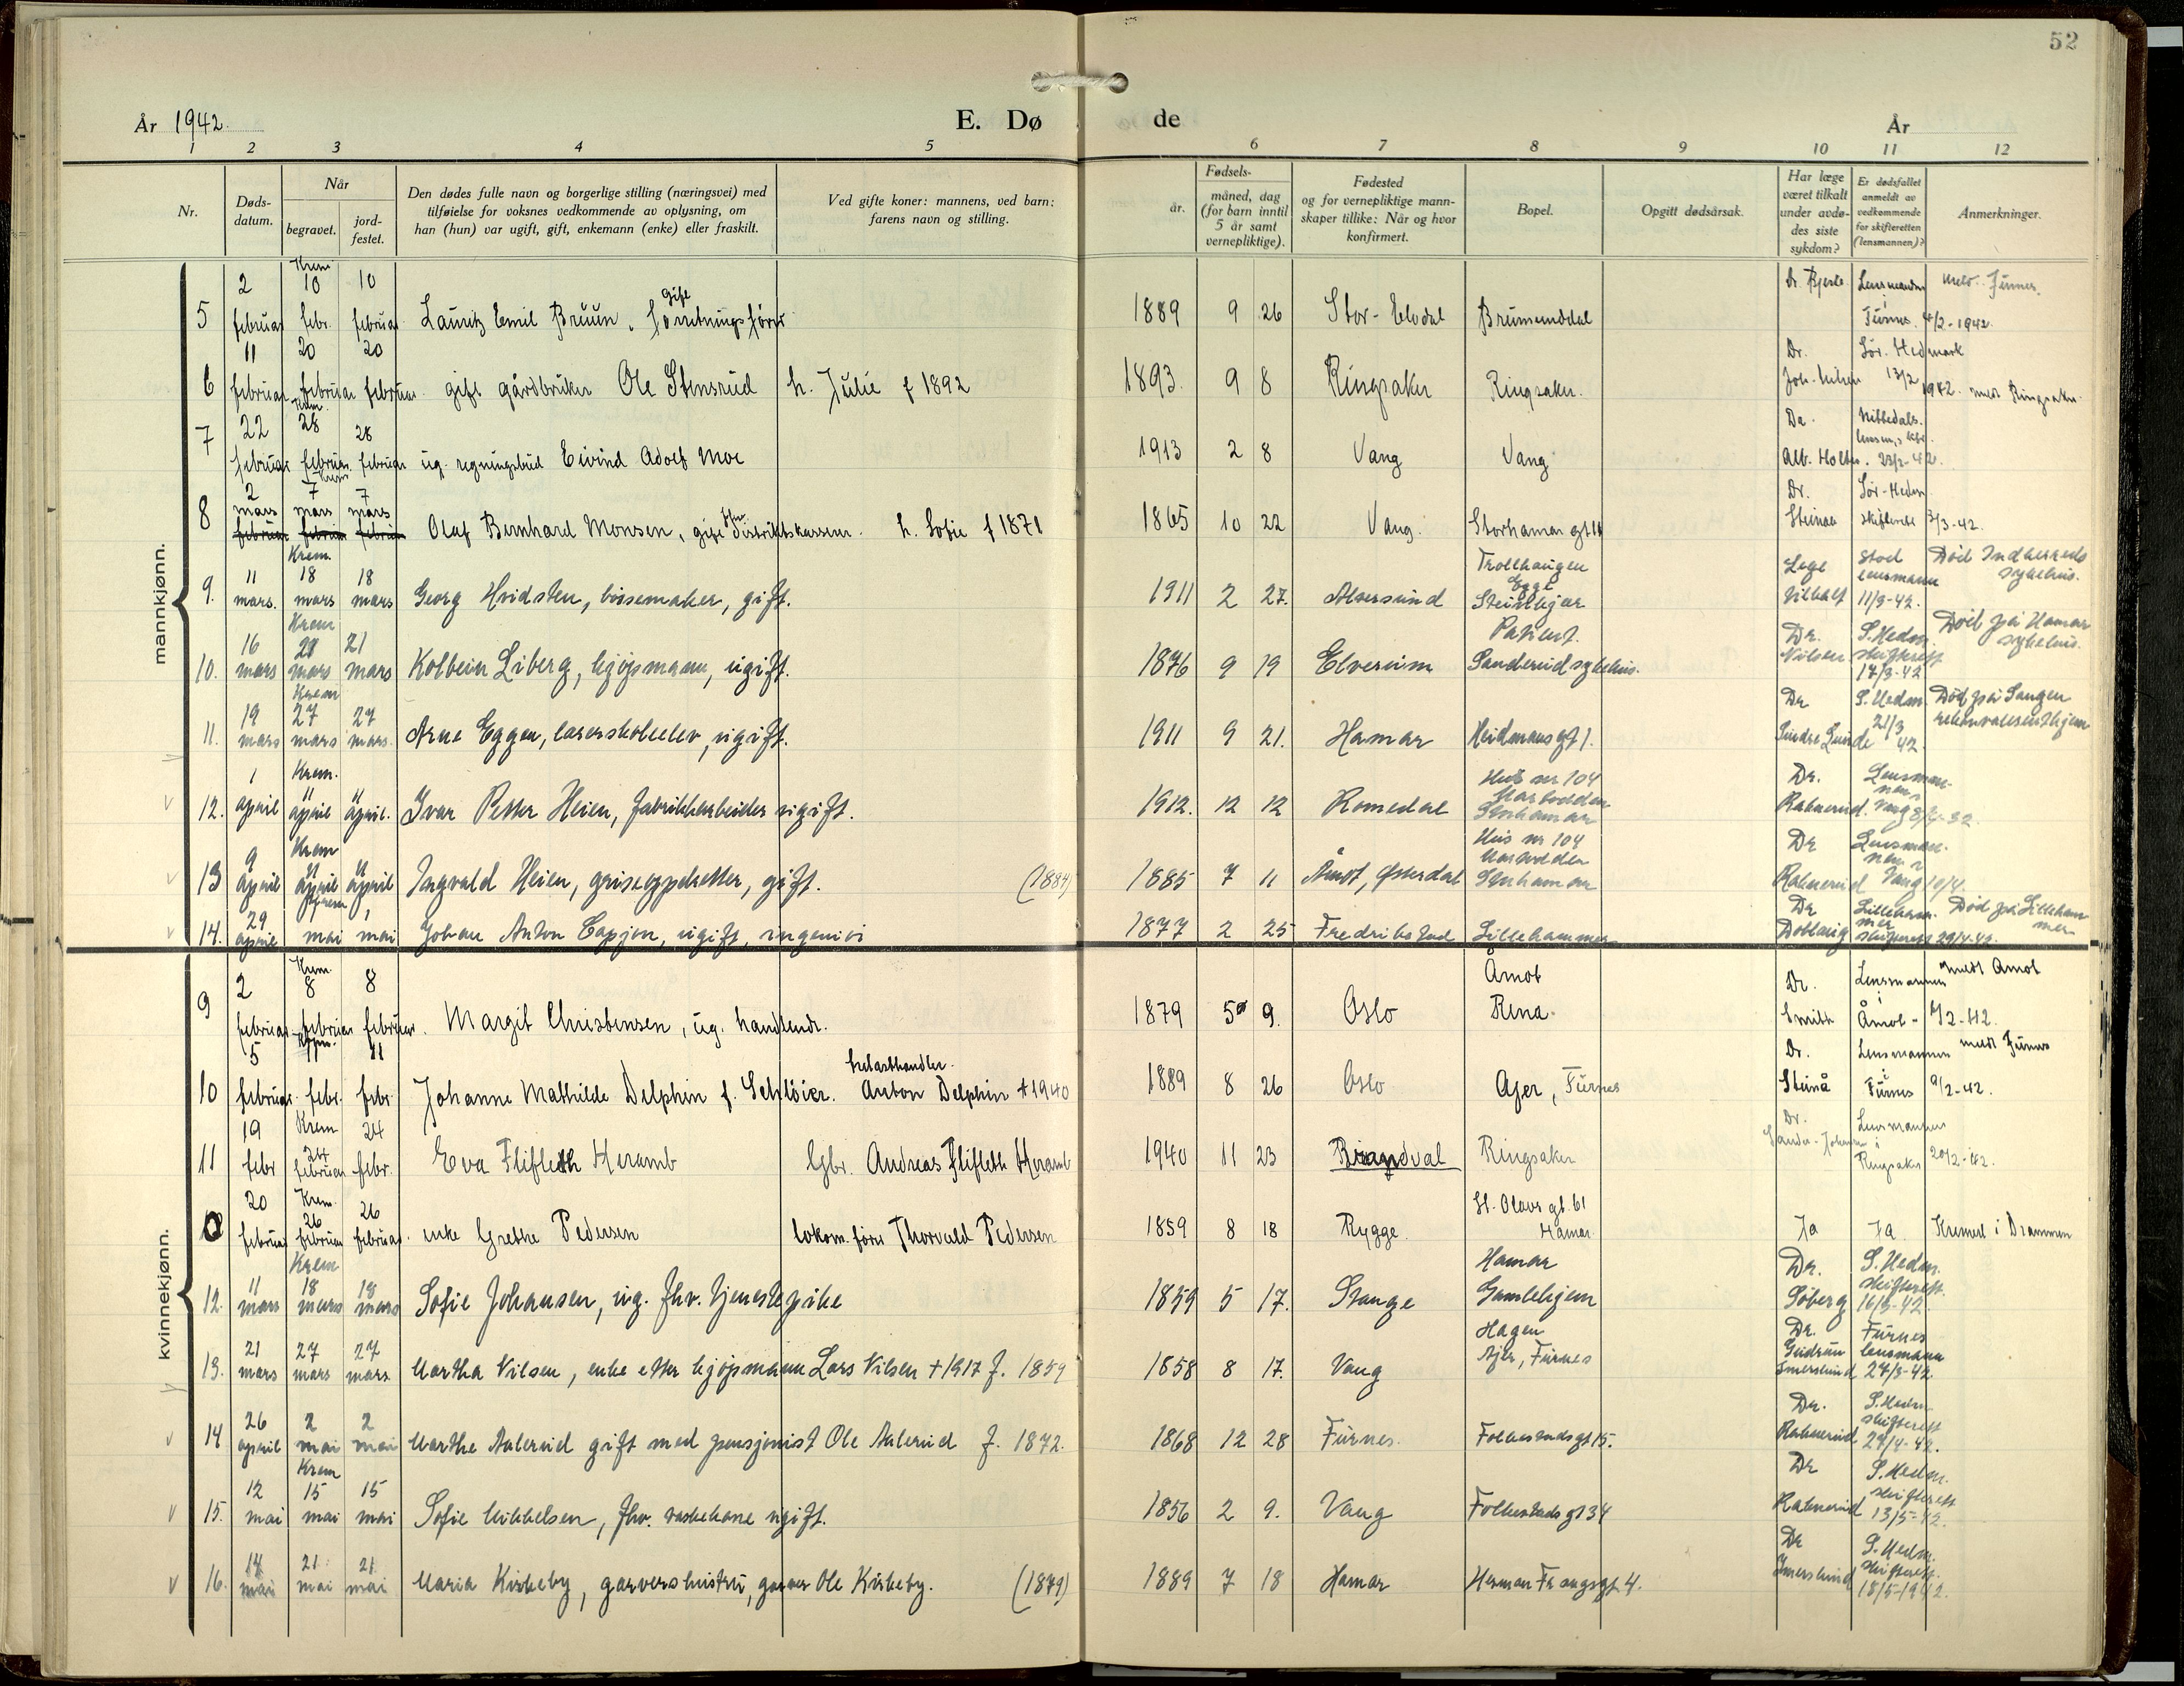 52
År 1942. E. Dø de År
1 2 3 4 5 6 7 8 9 10 11 12
Nr. Døds-datum. Når begravet. jord-festet. Den dødes fulle navn og borgerlige stilling (næringsvei) med tilføielse for voksnes vedkommende av oplysning, om han (hun) var ugift, gift, enkemann (enke) eller fraskilt. Ved gifte koner: mannens, ved barn: farens navn og stilling. Fødsels- år. måned, dag (for barn inntil 5 år samt vernepliktige). Fødested og for vernepliktige mann-skaper tillike: Når og hvor konfirmert. Bopel. Opgitt dødsårsak. Har læge været tilkalt under avdø-des siste sykdom? Er dødsfallet anmeldt av vedkommende for skifteretten (lensmannen)? Anmerkninger.
mannkjønn.
5 2 februar Krem 10 febr. 10 februar Lauritz Emil Bruun, gift forretningsfører 1889 9 26 Stor-Elvdal Brumunddal Dr. Lensmannen i Furnes. 4/2-1942. Furnes.
6 11 februar 20 februar 20 februar gift gårdbruker Ole Stensrud h. Julie f 1892 1893. 9 8 Ringsaker Ringsaker. Dr. Joh. Nilsen Sør. Hedmark 13/2 1942. medt Ringsaker
7 22 februar Krem. 28 februar 28 februar ug. regningsbud Eivind Adolf Moe 1913 2 8 Vang Vang Dr. Alb. Holter. Nittedals. 23/2-42.
8 2 mars Krem 7 mars 7 mars Olaf Bernhard Monsen, gift fhv. distriktskasserer. h. Sofie f 1871 1865 10 22 Vang. Storhamar gt 14 Dr. Steinaa Sør-Hedm skifterett 3/3-42.
9. 11 mars. Krem 18 mars 18 mars Georg Hvidsten, børsemaker, gift. 1911 2 27. Alversund Trollhaugen Egge Steinkjær Lege tilkalt Stod lensmann 11/3-42. Død Indherreds sykehus.
10. 16 mars Krem 21 mars 21 mars Kolbein Liberg, kjøpmann, ugift. 1876 9 19 Elverum Patient. Sanderud sykehus. Dr. Nilsen S. Hedm skifterett 17/3-42 Død på Hamar sykehus.
11. 19 mars Krem 27 mars 27 mars. Arne Eggen, lærerskoleelev, ugift. 1911 9 21. Hamar Heidmans gt 1. Dr Sindre Lunde S. Hedm. 21/3 42. Død på Saugen rekonvalesenthjem
12. 1 april Krem. 11 april 11 april. Ivar Petter Heien, fabrikkarbeider ugift. 1912. 12 12 Romedal Hus nr 104 Marsodden Storhamar Dr. Rabnerud. Lensmannen i Vang 8/4-32
13 9 april Krem 11 april 11 april Ingvald Heien, griseoppdretter, gift. (1884) 1885 7 11 Åmot, Østerdal Hus nr 104 Marsodden Storhamar Dr Rabnerud Lensmannen i Vang 10/4.
14. 29 april Krem 1 mai 1 mai Johan Anton Capjon, ugift, ingeniør 1877 2 25 Fredrikstad Lillehammer Dr Dobloug Lillehammer skifterett 29/4-42. Død på Lillehammer
kvinnekjønn.
9 2 februar Krem. 8 februar 8 februar. Margit Christensen, ug. handlende. 1879 5 9. Oslo Åmot Rena Dr. Smith Lensmannen i Åmot- 4/2-42. medt Åmot
10 5 februar. Krem. 11 febr. 11 febr. Johanne Mathilde Delphin f. Schløier. trelasthandler. Anton Delphin †1940 1889 8 26 Oslo Ajer, Furnes Dr. Steinå Lensmannen i Furnes 9/2-42. medt Furnes
11 19 febr Krem 24 februar 24 febr. Eva Flifleth Heramb Gbr. Andreas Flifleth Heramb 1940 11 23 Brandval Ringsaker Dr. Sander-Johansen Lensmannen i Ringsaker 20/2-42.
0 20 februar Krem. 26 februar 26 februar. enke Grethe Pedersen lokom. fører Thorvald Pedersen 1859 8 18 Rygge. St. Olavs gt. 61 Hamar. Ja Ja. Kremert i Drammen
12. 11 mars Krem 18 mars 18 mars Sofie Johansen, ug. fhv. tjenestepike 1859 5 17. Stange Hamar Gamlehjem Dr. Soberg S. Hedm. skifterett. 16/3-42.
13. 21 mars 27 mars 27 mars Martha Nilsen, enke etter kjøpmann Lars Nilsen †1917 f. 1859 1858 8 17. Vang Hagen Ajer, Furnes Dr. Gudrun Imerslund Furnes lensmann 27/3-42.
14 26 april 2 mai 2 mai Marthe Aalerud gift med pensjonist Ole Aalerud f. 1872. 1868 12 28 Furnes. Folkestadsgt 15. Dr. Rabnerud S. Hedm. skifterett 27/4-42.
15. 12 mai Krem 15 mai 15 mai Sofie Mikkelsen, fhv. vaskekone ugift. 1856 2 9. Vang Folkestads gt 34 Dr Rabnerud S. Hedm. skifterett 13/5-42.
16. 17 mai 21 mai 21 mai Maria Kirkeby, garvershustru, garver Ole Kirkeby. (1879) 1889 7 18 Hamar Herman Frangsgt. 4. Dr Imerslund S. Hedm. skifterett. 18/5-1942.